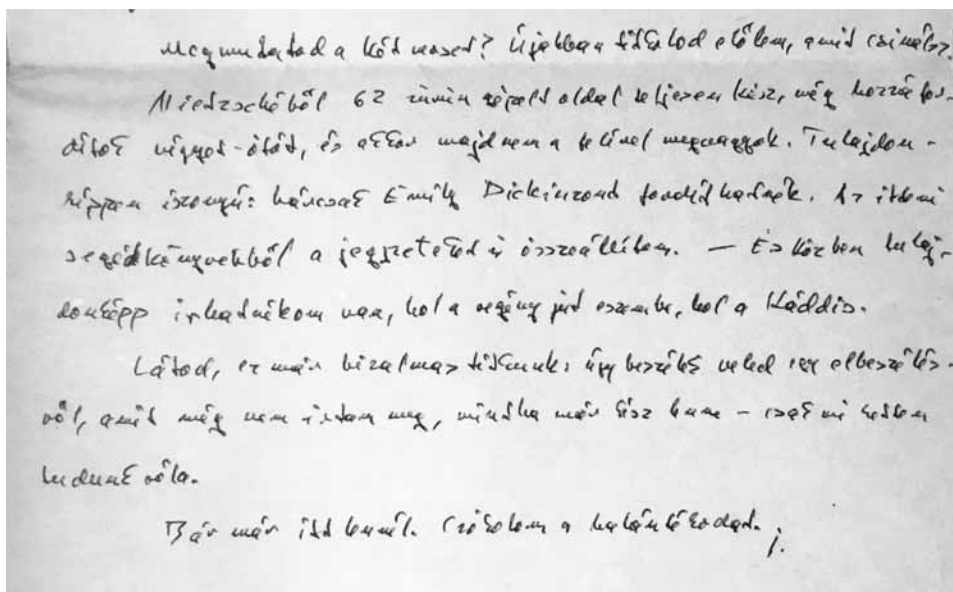 Megmutatod a két verset? Újabban titkolod előlem, amit csinálsz.
Nietzschéből 62 gépelt oldal teljesen kész, még hozzá for-
dítok négyet-ötöt, és akkor majdnem a felével megvagyok. Tulajdon-
képpen iszonyú: bárcsak Emily Dickinzont fordíthatnék. Az itteni
segédkönyvekből a jegyzeteket is összeállítom. — És közben tulaj-
donképp írhatnékom van, hol a regény jut eszembe, hol a Káddis.
Látod, ez már bizalmas titkunk: úgy beszélek veled egy elbeszélés-
ről, amit még nem írtam meg, mintha már kész lenne – csak mi ketten
tudunk róla.
Bár már itt lennél. Csókolom a halántékodat. j.